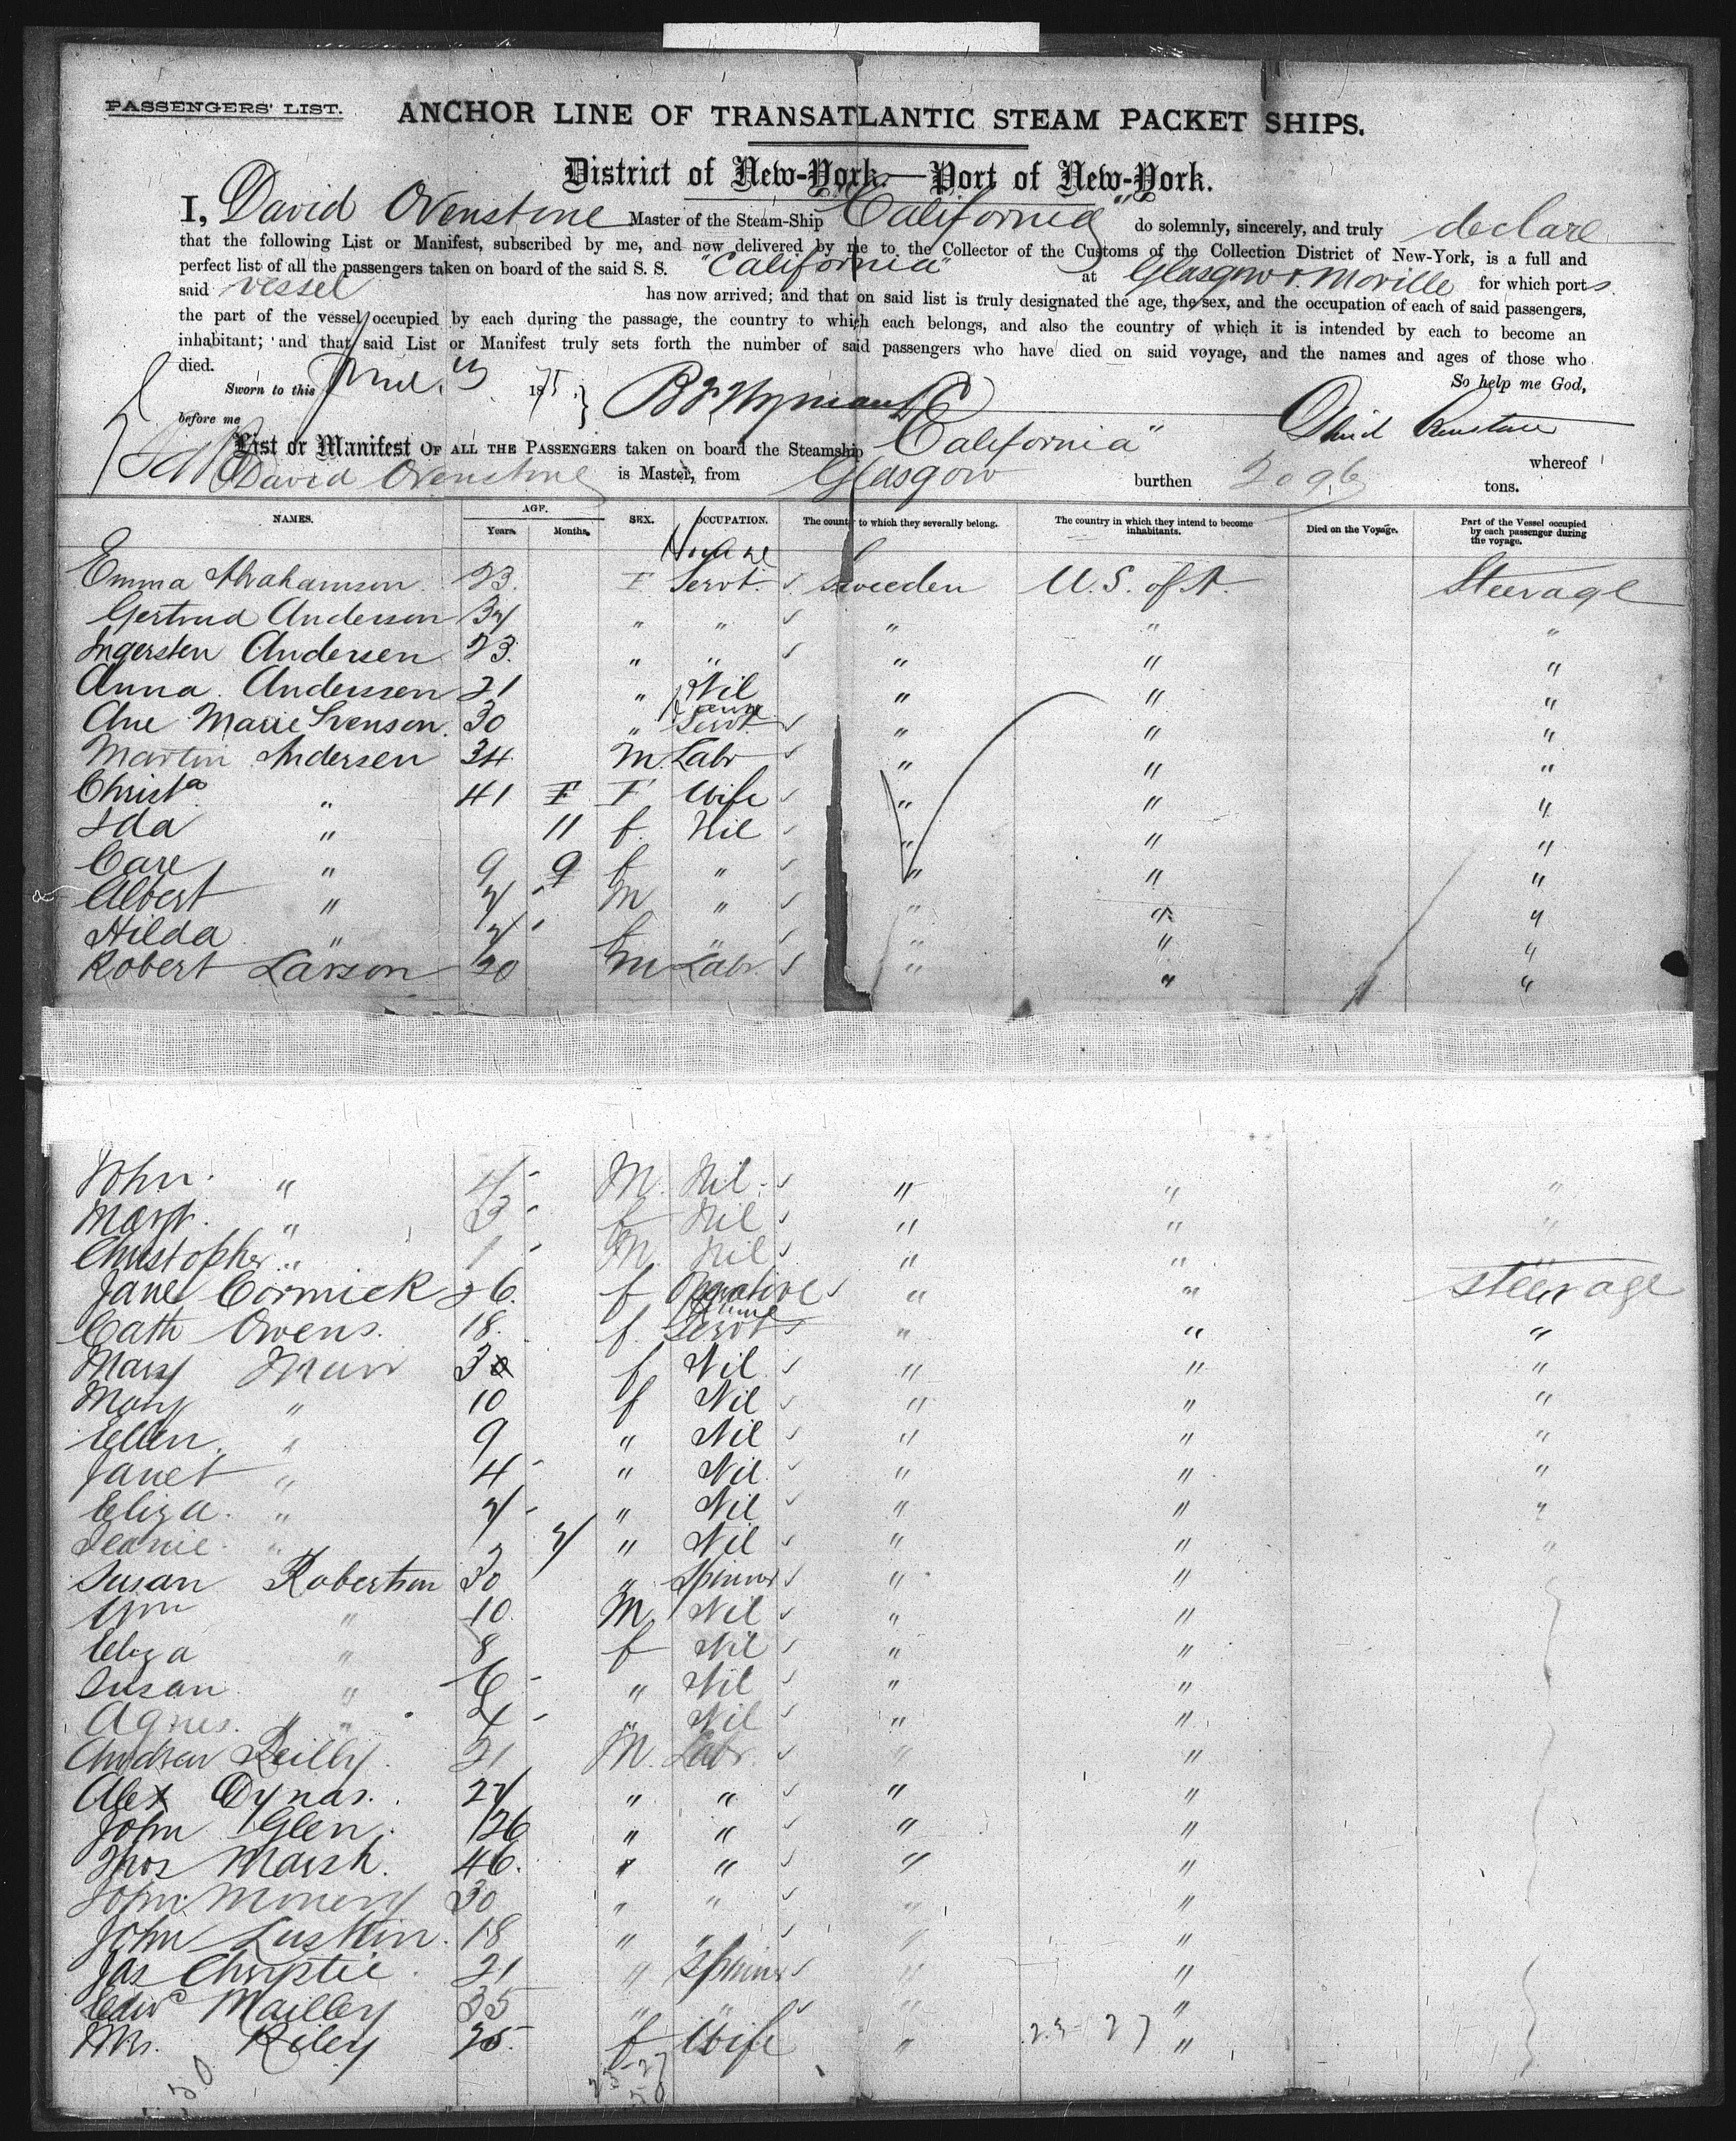 PASSENGERS' LIST.
ANCHOR LINE OF TRANSATLANTIC STEAM PACKET SHIPS.
District of New-York.—Port of New-York.
I, David Ovenstone Master of the Steam-Ship "California" do solemnly, sincerely, and truly declare
that the following List or Manifest, subscribed by me, and now delivered by me to the Collector of the Customs of the Collection District of New-York, is a full and
perfect list of all the passengers taken on board of the said S. S. "California" at Glasgow & Moville for which ports
said vessel has now arrived; and that on said list is truly designated the age, the sex, and the occupation of each of said passengers,
the part of the vessel occupied by each during the passage, the country to which each belongs, and also the country of which it is intended by each to become an
inhabitant; and that said List or Manifest truly sets forth the number of said passengers who have died on said voyage, and the names and ages of those who
died.
So help me God,
Sworn to this June 1875
before me
List or Manifest OF ALL THE PASSENGERS taken on board the Steamship "California" whereof
David Ovenstone is Master, from Glasgow burthen 2096 tons.
NAMES. AGE. Years. Months. SEX. OCCUPATION. The country to which they severally belong. The country in which they intend to become inhabitants. Died on the Voyage. Part of the Vessel occupied by each passenger during the voyage.
Emma Abrahamson 23 F Servt. Sweeden U.S. of A. Steerage
Gertrud Anderson " " " " "
Ingersten Andersen 23 " " " " "
Anna Anderssen 21 " Nil " " "
Ane Marie Svenson 30 " Servt. " " "
Martin Andersen 34 M Labr " " "
Christa " 41 F Wife " " "
Ida " 11 f Nil " " "
" 9 f " " " "
Albert " M " " " "
Hilda " f " " " "
Robert Larson 20 M Labr " " "
John " M Nil " " "
Margt. " 3 f Nil " " "
Christopher " 1 M Nil " " "
Jane Cormick 26 f Operative " " Steerage
Cath Owens 18 f Servt " " "
Mary Muir f Nil " " "
Mary " 10 f Nil " " "
Ellen " 9 " Nil " " "
Janet " 4 " Nil " " "
Eliza " " Nil " " "
Jeanie " " Nil " " "
Susan Robertson 30 " Spinner " "
Wm " 10 M Nil " "
Eliza " 8 f Nil " "
Susan " 6 " Nil " "
Agnes " 4 " Nil " "
Andrew Reilly 21 M Labr " "
Alex Dynas " " " "
John Glen 26 " " " "
Thos Marsh 46 " " " "
John 30 " " " "
John Luskin 18 " " " "
Jas Christie 21 " Spinner " "
Edwd Mailley 35 " " " "
Mrs. Riley f Wife " "